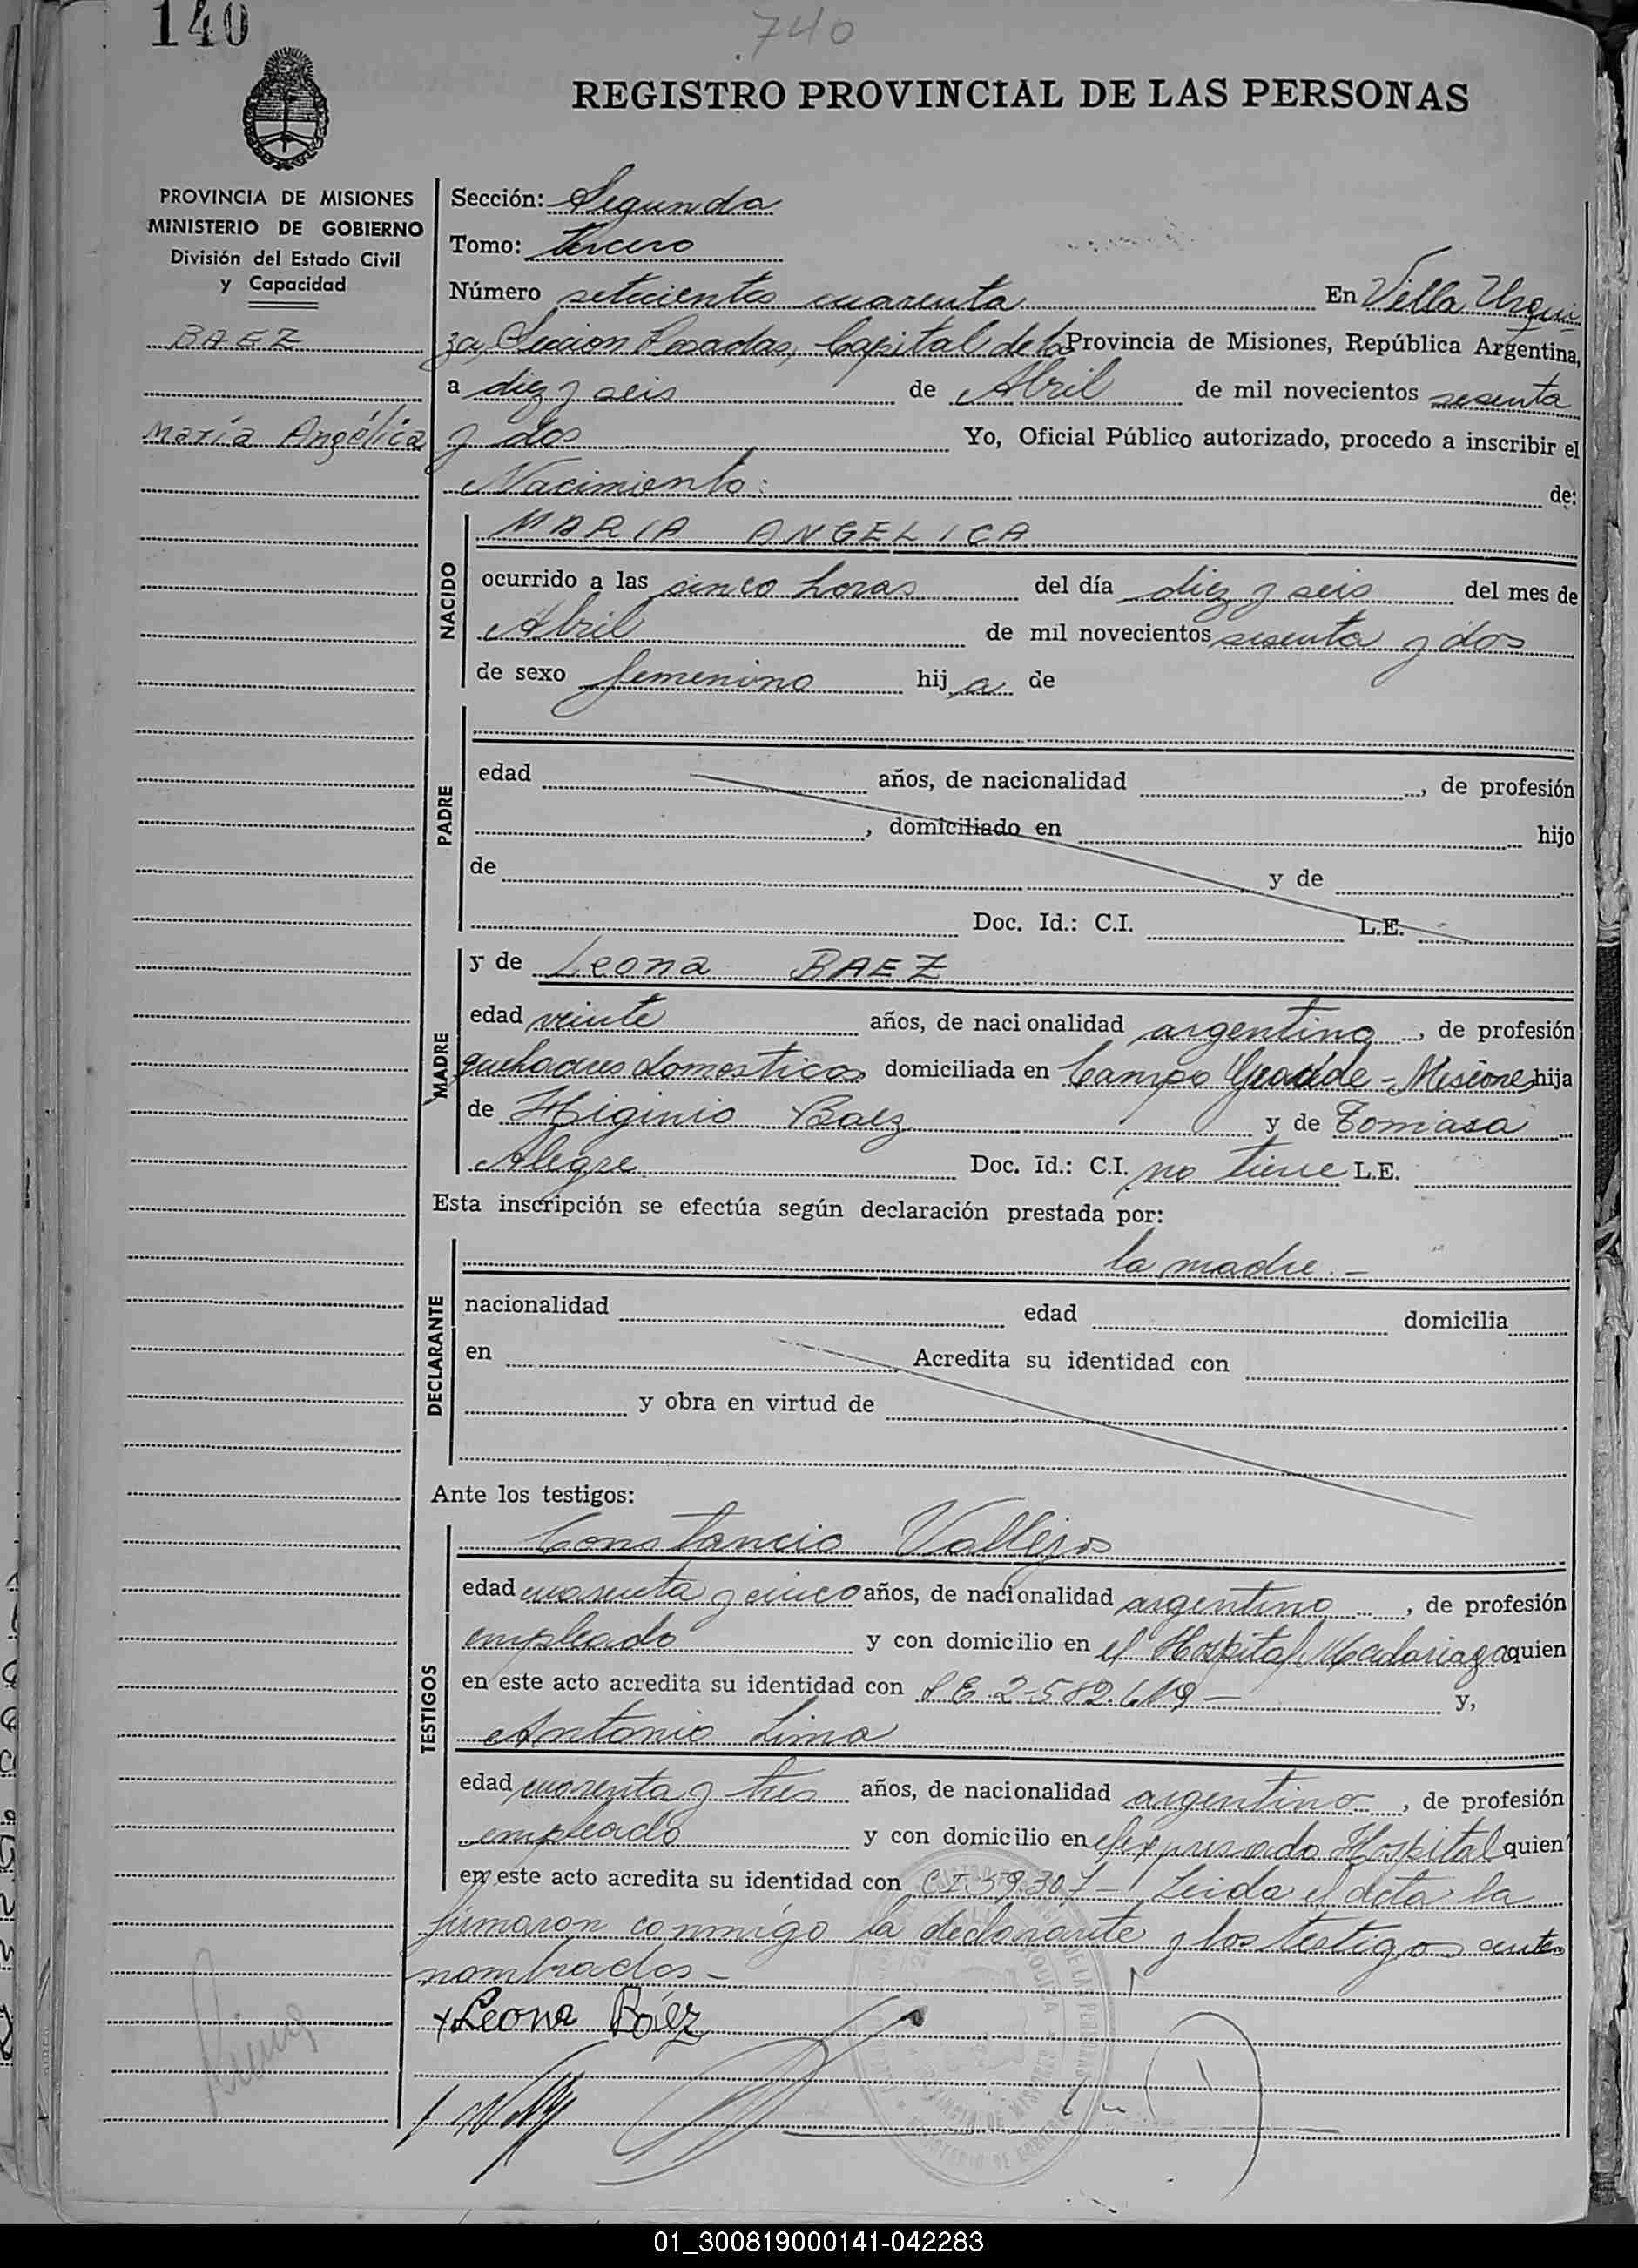 140
740
REGISTRO PROVINCIAL DE LAS PERSONAS
PROVINCIA DE MISIONES
MINISTERIO DE GOBIERNO
División del Estado Civil
y Capacidad
BAEZ
María Angélica
Sección: Segunda
Tomo: tercero
Número setecientos cuarenta En Villa Urqui
za, Seccion Posadas, Capital de la Provincia de Misiones, República Argentina,
a diez y seis de Abril de mil novecientos sesenta
y dos Yo, Oficial Público autorizado, procedo a inscribir el
Nacimiento: de:
NACIDO
MARIA ANGELICA
ocurrido a las cinco horas del día diez y seis del mes de
Abril de mil novecientos sesenta y dos
de sexo femenino hij a de
PADRE
edad años, de nacionalidad , de profesión
, domiciliado en hijo
de y de
Doc. Id.: C.I. L.E.
MADRE
y de Leona BAEZ
edad veinte años, de naci onalidad argentina , de profesión
quehaceres domesticos domiciliada en Campo Grande - Misiones hija
de Higinio Baez y de Tomasa
Alegre Doc. Id.: C.I. no tiene L.E.
Esta inscripción se efectúa según declaración prestada por:
DECLARANTE
la madre. -
nacionalidad edad domicilia
en Acredita su identidad con
y obra en virtud de
Ante los testigos:
TESTIGOS
Constancio Vallejos
edad cuarenta y cinco años, de nacionalidad argentino , de profesión
empleado y con domicilio en el Hospital Madariaga quien
en este acto acredita su identidad con y,
Antonio Lima
edad cuarenta y tres años, de nacionalidad argentino , de profesión
empleado y con domicilio en el expresado Hospital quien
en este acto acredita su identidad con CI 59.307 - Leida el acta la
firmaron conmigo la declarante y los testigos ante
nombrados -
x Leona Báez
01_300819000141-042283